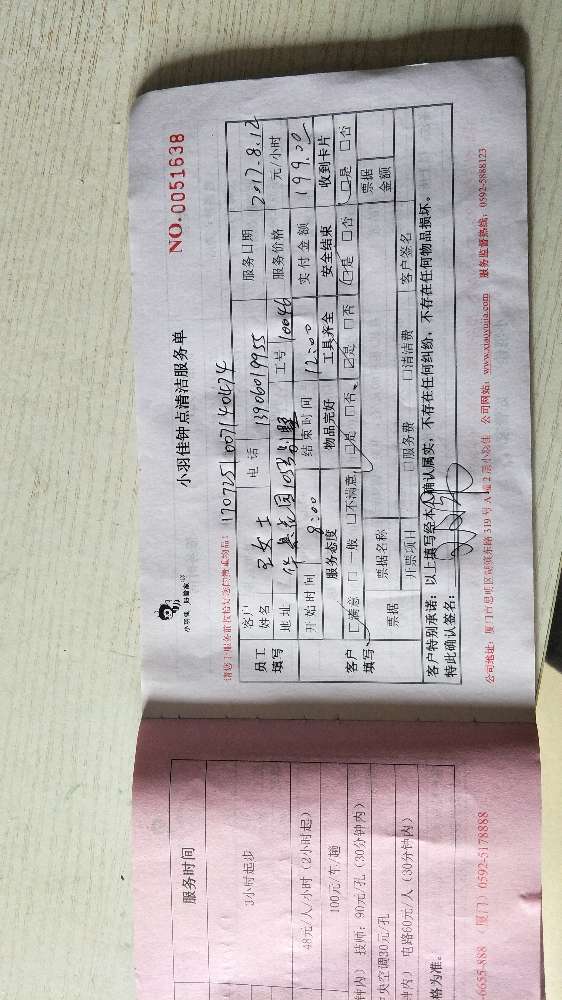 小羽佳 好管家
小羽佳钟点清洁服务单
NO.0051638
17072510071401474
员工填写
客户姓名 王女士 电话 13906019955 服务日期 2017.8.12
地址 工号 10046 服务价格 元/小时
开始时间 8:00 结束时间 12:00 实付金额 199.00
客户填写
服务态度 物品完好 工具齐全 安全结束 收到卡片
□满意 □一般 □不满意 □是 □否 □是 □否 □是 □否 □是 □否
票据 票据名称 票据金额
开票项目 □服务费 □清洁费 客户签名
客户特别承诺：以上填写经本人确认属实，不存在任何纠纷，不存在任何物品损坏。
特此确认签名：
公司网站：www.xiaoyujia.com 服务监督热线：0592-5888123
服务时间
3小时起步
48元/人/小时（2小时起）
100元/车/趟
钟内） 技师：90元/孔（30分钟内）
央空调30元/孔
钟内） 电路60元/人（30分钟内）
格为准。
6655-888 （厦门）0592-5178888